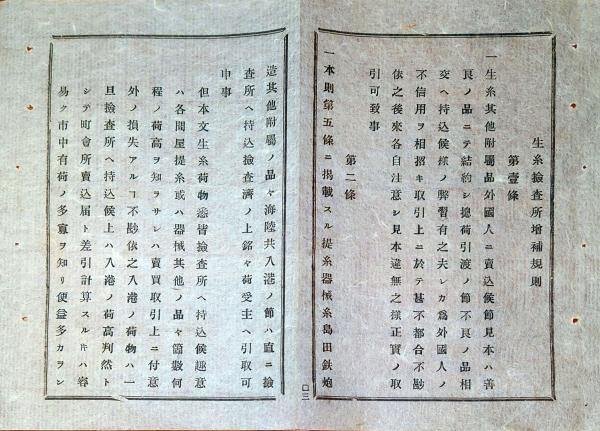 生糸檢査所增補規則
第壹條
一生糸其他附屬品外國人ニ賣込候節見本ハ善
良ノ品ニテ結約シ摠荷引渡ノ節不良ノ品相
交ヘ持込候樣ノ弊習有之夫レカ為外國人ノ
不信用ヲ相招キ取引上ニ於テ甚不都合不尠
依之後來各自注意シ見本違無之樣正實ノ取
引可致事
第二條
一本則第五條ニ揭載スル提糸器械糸島田鉄炮
造其他附屬ノ品々海陸共入港ノ節ハ直ニ撿
查所ヘ持込撿查濟ノ上銘々荷受主ヘ引取可
申事
但本文生糸荷物悉皆撿查所ヘ持込候趣意
ハ各問屋提糸或ハ器械其他ノ品々箇數何
程ノ荷高ヲ知ラサレハ賣買取引上ニ付意
外ノ損失アルヿ不尠依之入港ノ荷物ハ一
旦撿查所ヘ持込候上ハ入港ノ荷高判然ト
シテ町會所賣込届ト差引計算スルキハ容
易ク市中有荷ノ多寡ヲ知リ便益多カラン
口三